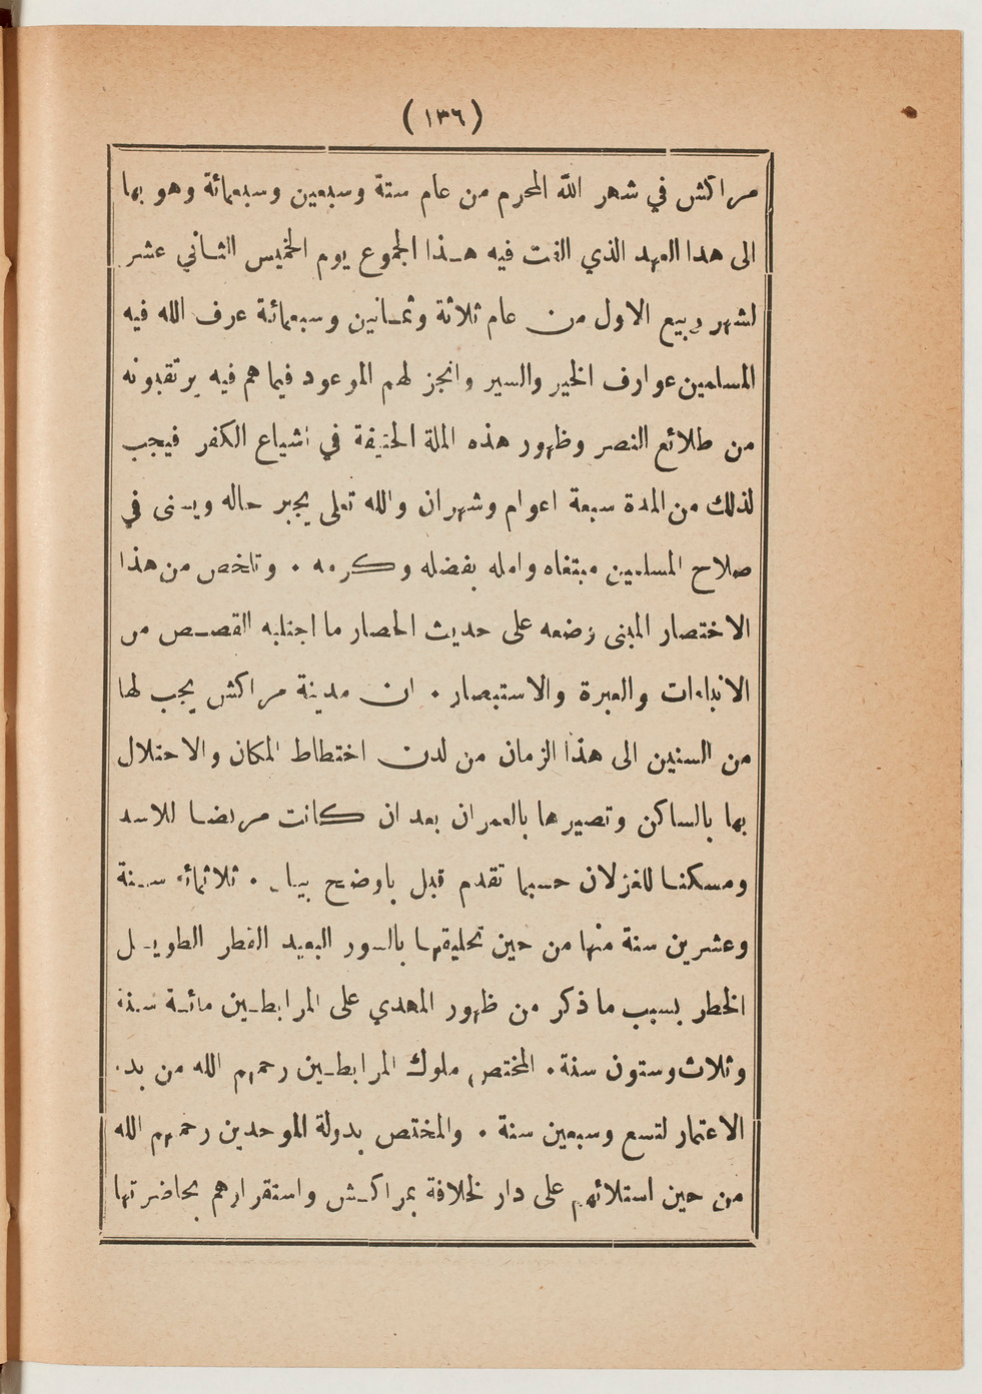 (١٣٦)
مراكش في شهر الله المحرم من عام ستة وسبعين وسبعمائة وهو بها
الى هدا العهد الذي الفت فيه هـذا المجموع يوم الخميس الثـاني عشر
لشهر ربيع الاول من عام ثلاثة وثمـانين وسبعمائة عرف الله فيه
المسلمين عوارف الخير والسير وانجز لهم الموعود فيما هم فيه يرتقبونه
من طلائع النصر وظهور هذه الملة الحنيفة في اشياع الكفر فيجب
لذلك من المدة سبعة اعوام وشهران والله تعلى يجبر حاله ويسنى في
صلاح المسلمين مبتغاه وامله بفضله وكرمه . وتلخص من هذا
الاختصار المبنى وضعه على حديث الحصار ما اجتلبه القصـص من
الانباءات والعبرة والاستبصار . ان مدينة مراكش يجب لها
من السنين الى هذا الزمان من لدن اختطاط المكان والاحتلال
بها بالساكن وتصيرها بالعمران بعد ان كانت مربضـا للاسد
ومسكنـا للغزلان حسبما تقدم قبل باوضح بيان . ثلاثمائة سـنة
وعشرين سنة منها من حين تحليقهـا بالسور البعيد القطر الطويـل
الخطر بسبب ما ذكر من ظهور المهدي على المرابطـين مائـة سنة
وثلاث وستون سنة . المختص بملوك المرابطـين رحمهم الله من بدء
الاعتمار لتسع وسبعين سنة . والمختص بدولة الموحدين رحمهم الله
من حين استلائهم على دار لخلافة بمراكـش واستقرارهم بحاضرتها